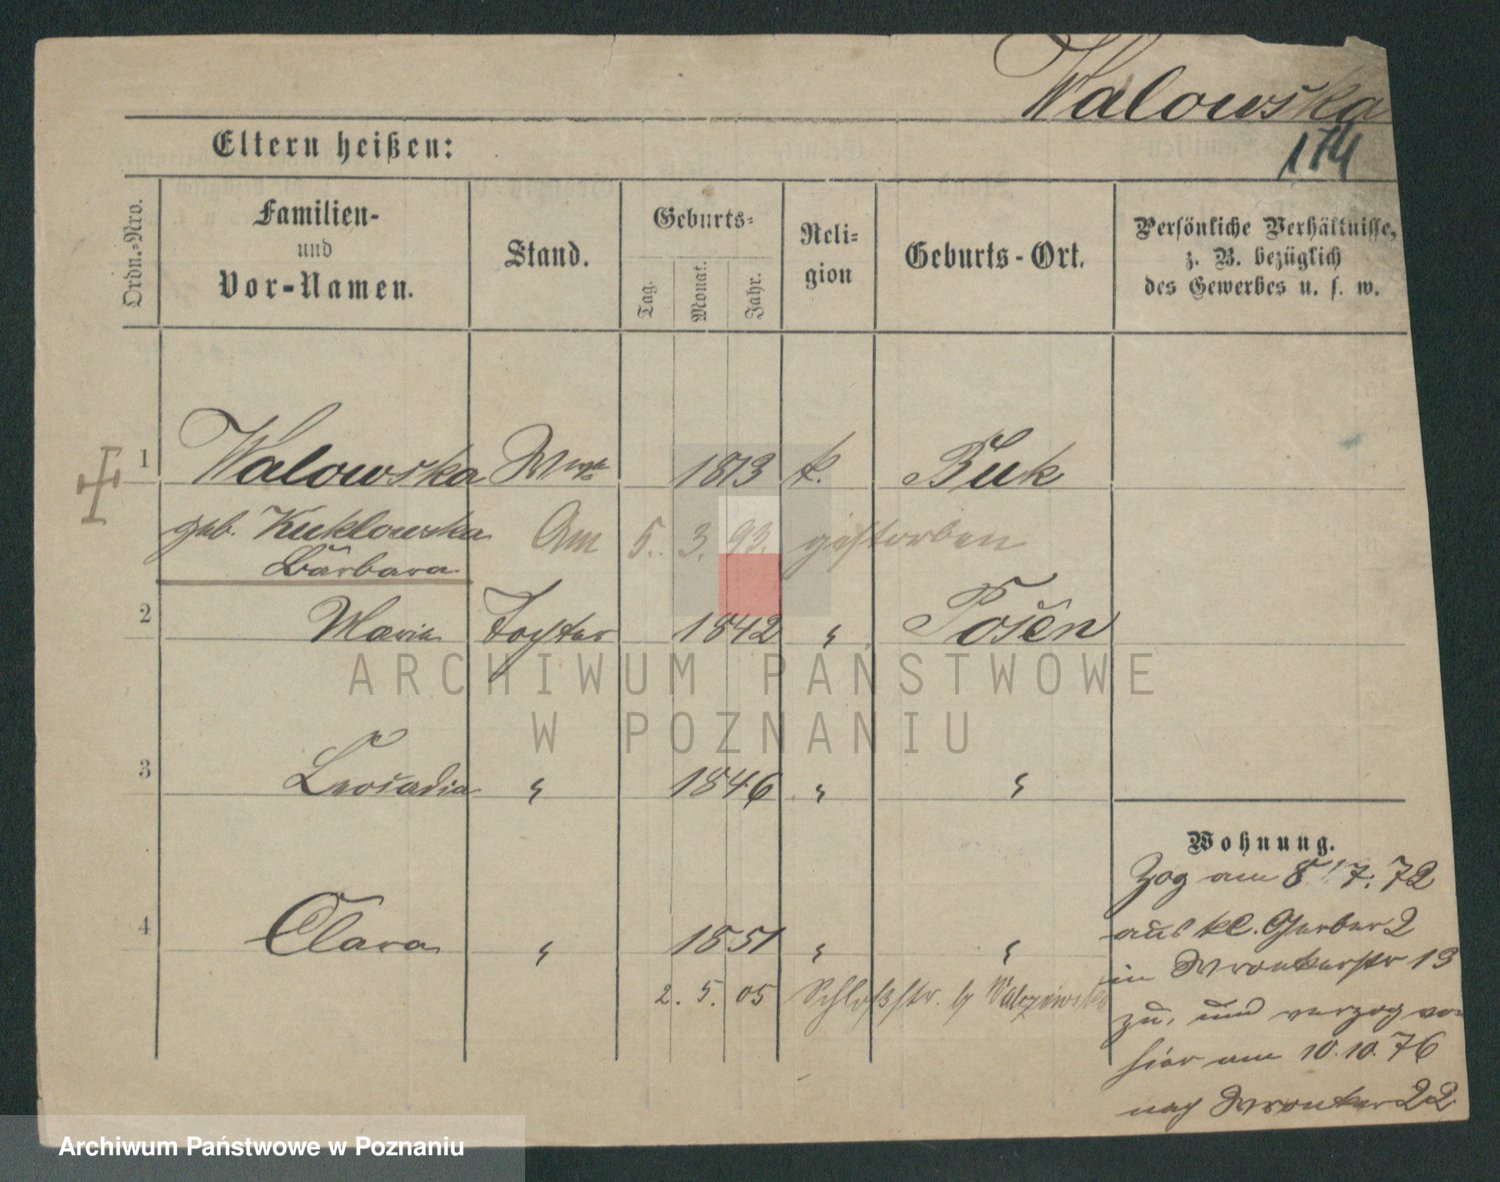 Walowska
174
Eltern heißen:
Ordn.-Nro.
Familien-
und
Vor-Namen.
Stand.
Geburts-
Tag.
Monat.
Jahr.
Reli-
gion
Geburts-Ort.
Persönliche Verhältnisse,
z. B. bezüglich
des Gewerbes u. s. w.
1 Walowska Wwe 1813 k. Buk
geb. Kuklowska Am 5. 3. 93. gestorben
Barbara
2 Maria Tochter 1842 " Posen
ARCHIWUM PAŃSTWOWE
W POZNANIU
3 Leocadia " 1846 " "
Wohnung.
4 Clara " 1851 " "
2. 5. 05 Schloßstr.
Zog am 8/7. 72
aus kl. Gerber 2
in Wronkerstr 13
zu, und verzog von
hier am 10.10.76
nach Wronker 22
Archiwum Państwowe w Poznaniu